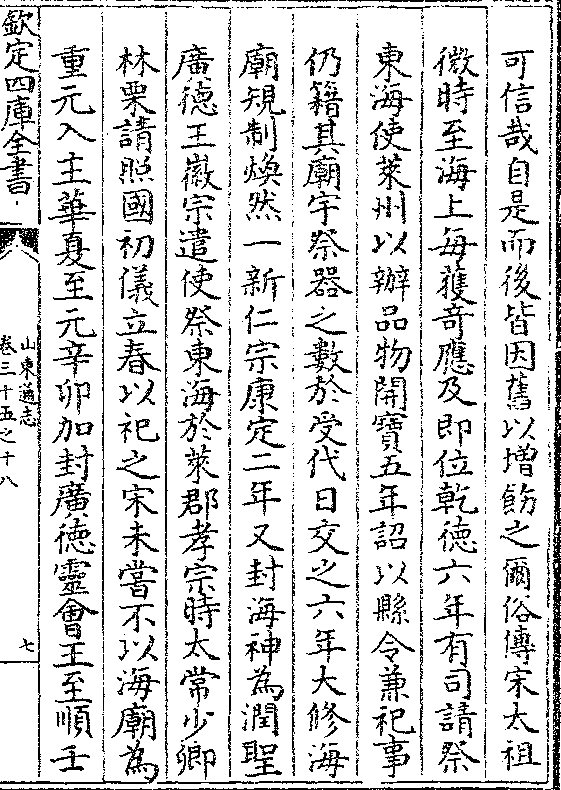 可信哉自是而後皆因舊以增飾之爾俗傳宋太祖
微時至海上每獲奇應及即位乾徳六年有司請祭
東海使萊州以辦品物開寶五年詔以縣令兼祀事
仍籍其廟宇祭器之數於受代日交之六年大修海
廟規制煥然一新仁宗康定二年又封海神為淵聖
廣德王徽宗遣使祭東海於萊郡孝宗時太常少卿
林栗請照國初儀立春以祀之宋未嘗不以海廟為
重元入主華夏至元辛卯加封廣徳靈會王至順壬
欽定四庫全書
山東通志
卷三十五之十八
七